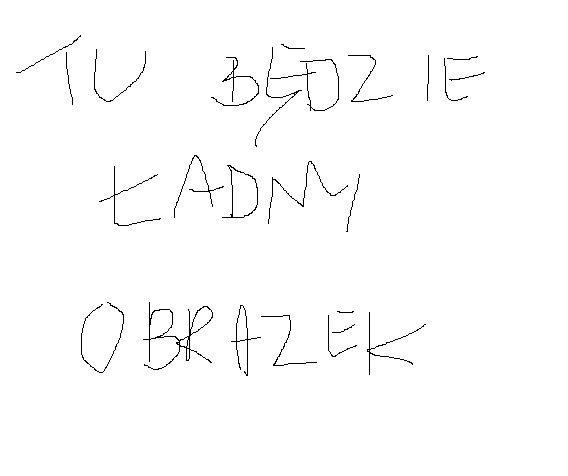 TU BĘDZIE
ŁADNY
OBRAZEK